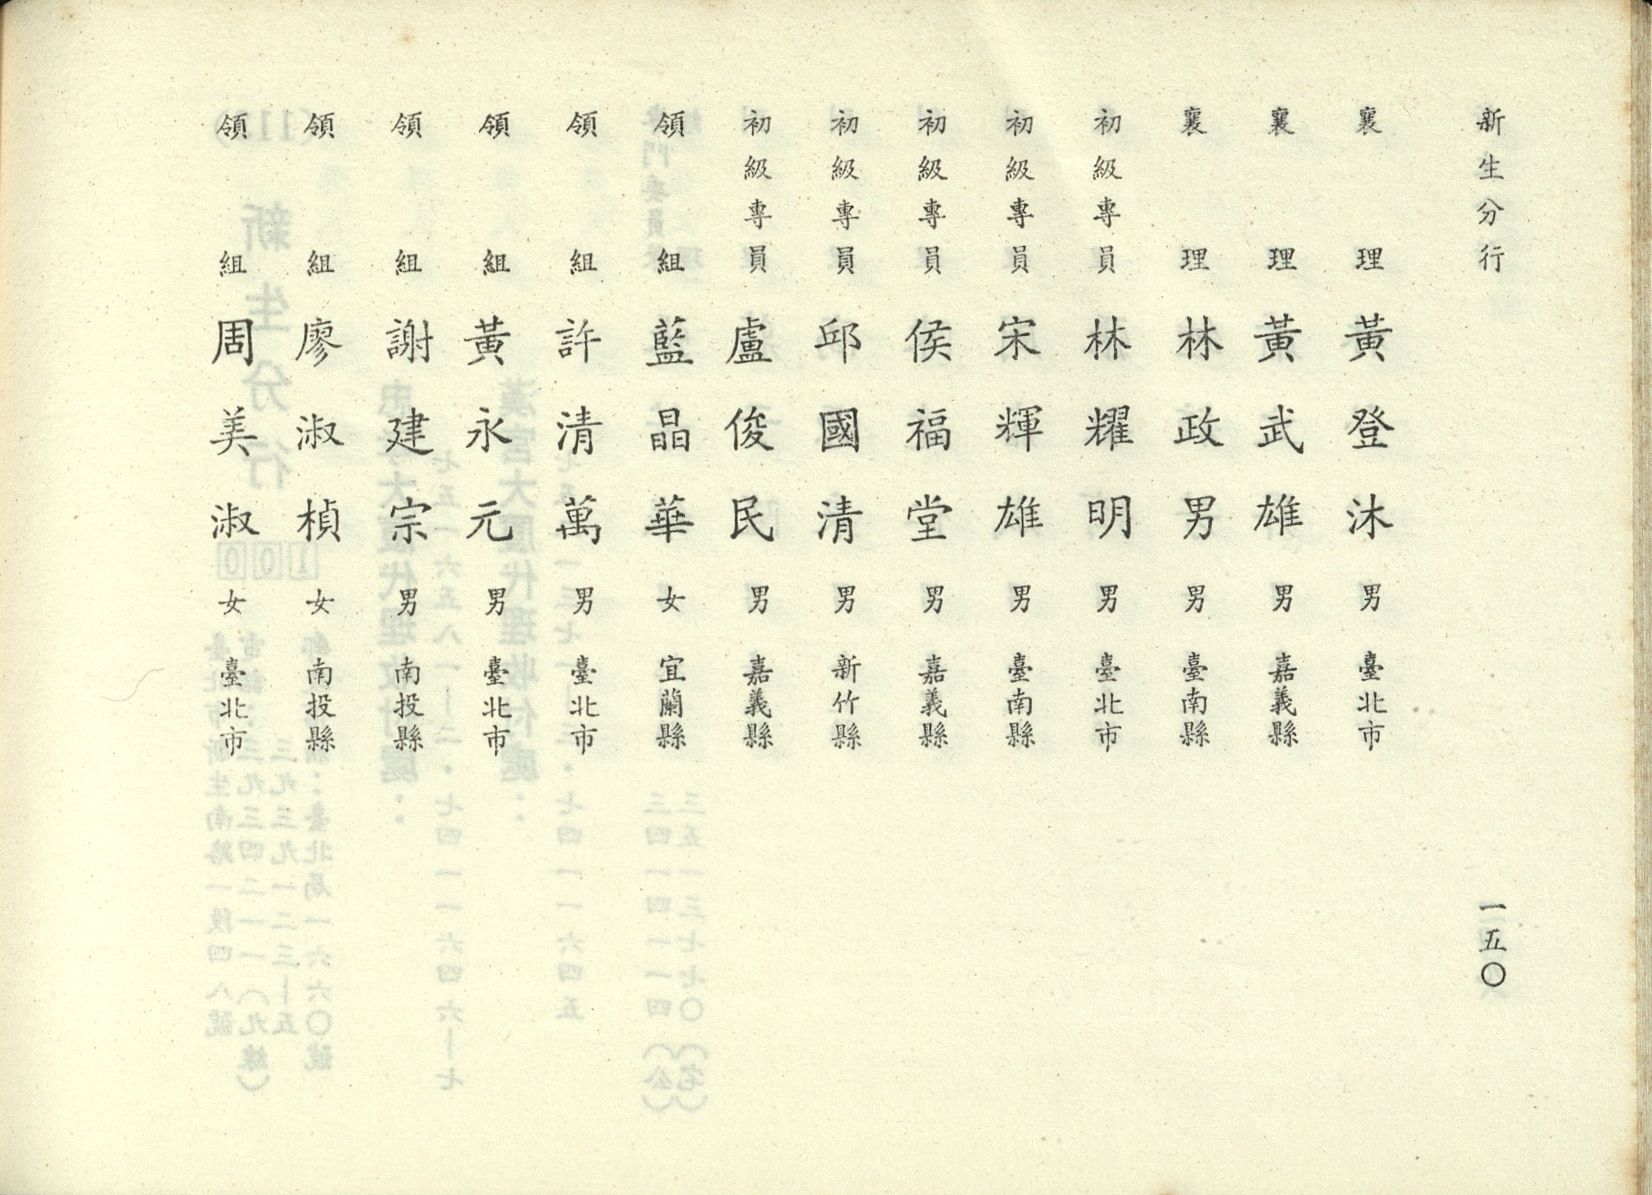 新生分行 一五〇
襄理 黃登沐 男 臺北市
襄理 黃武雄 男 嘉義縣
襄理 林政男 男 臺南縣
初級專員 林耀明 男 臺北市
初級專員 宋輝雄 男 臺南縣
初級專員 侯福堂 男 嘉義縣
初級專員 邱國清 男 新竹縣
初級專員 盧俊民 男 嘉義縣
領組 藍晶華 女 宜蘭縣
領組 許清萬 男 臺北市
領組 黃永元 男 臺北市
領組 謝建宗 男 南投縣
領組 廖淑楨 女 南投縣
領組 周美淑 女 臺北市